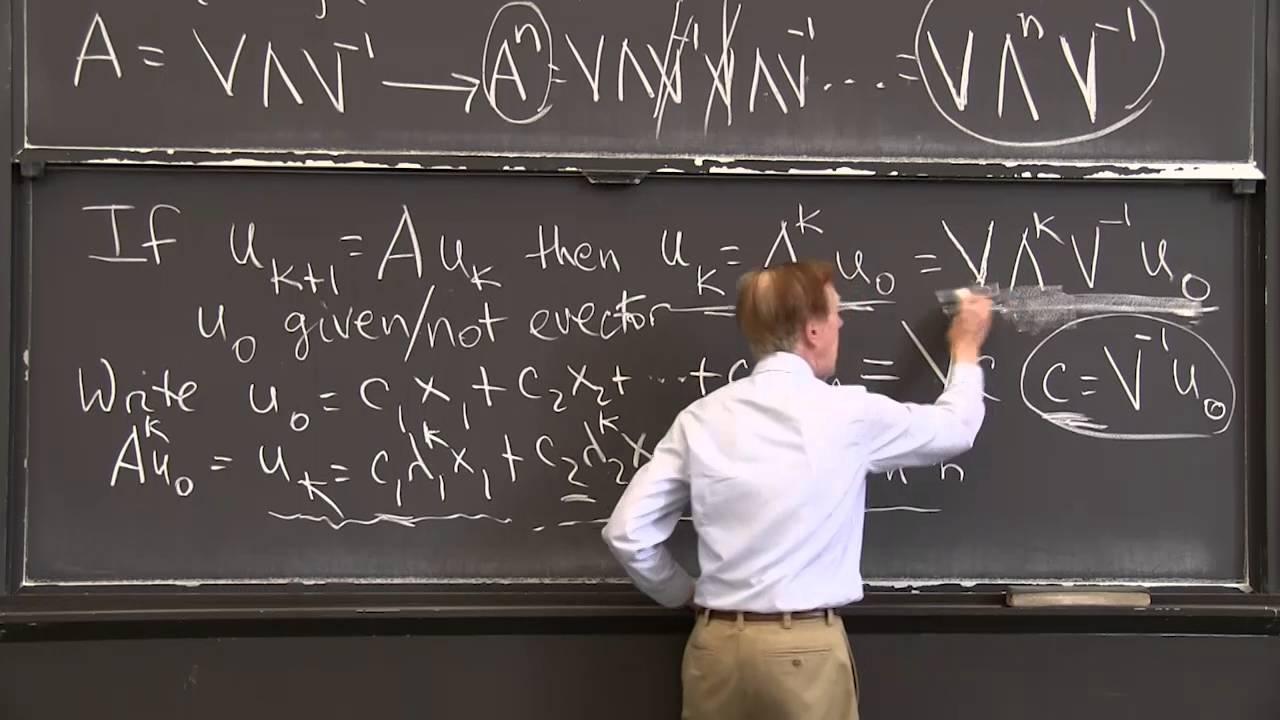 A = VΛV⁻¹ → Aⁿ = VΛV⁻¹VΛV⁻¹ ... = VΛⁿV⁻¹
If u_{k+1} = A u_k then u_k = A^k u_0 = VΛ^kV⁻¹u_0
u_0 given/not evector
Write u_0 = c_1x_1 + c_2x_2 + ... + c = V c c = V⁻¹u_0
A^k u_0 = u_k = c_1λ_1^k x_1 + c_2λ_2^k x